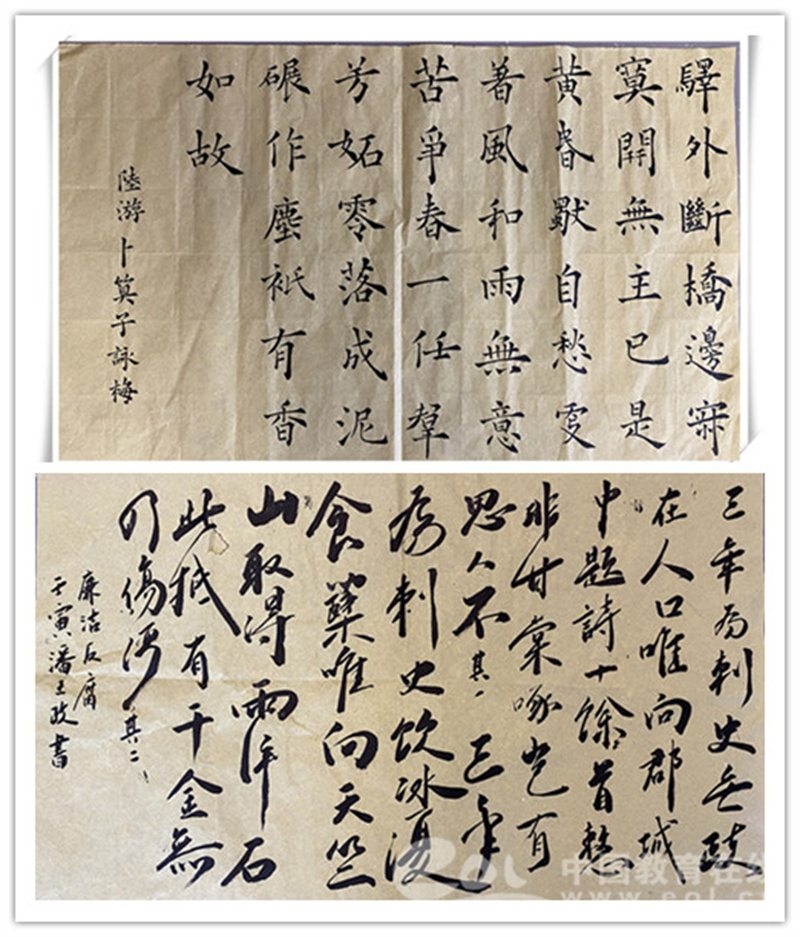 驛外斷橋邊寂
寞開無主已是
黄昏自愁更
著風和雨無意
苦爭春一任羣
芳妬零落成泥
碾作塵祇有香
如故
陸游卜算子詠梅
三年为刺史無政
在人口唯向郡城
中題詩十餘首慙
非甘棠咏岂有
思人不其一三年
为刺史饮冰復
食蘗唯向天竺
山取得兩片石
此抵有千金無
乃傷清其二
廉洁反腐
壬寅潘立政書
eol 中国教育在线